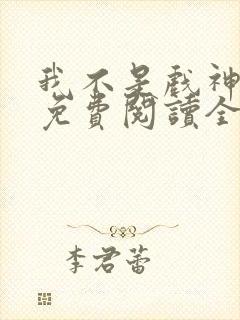 我不是戲神
免費閱讀全
李君蕾